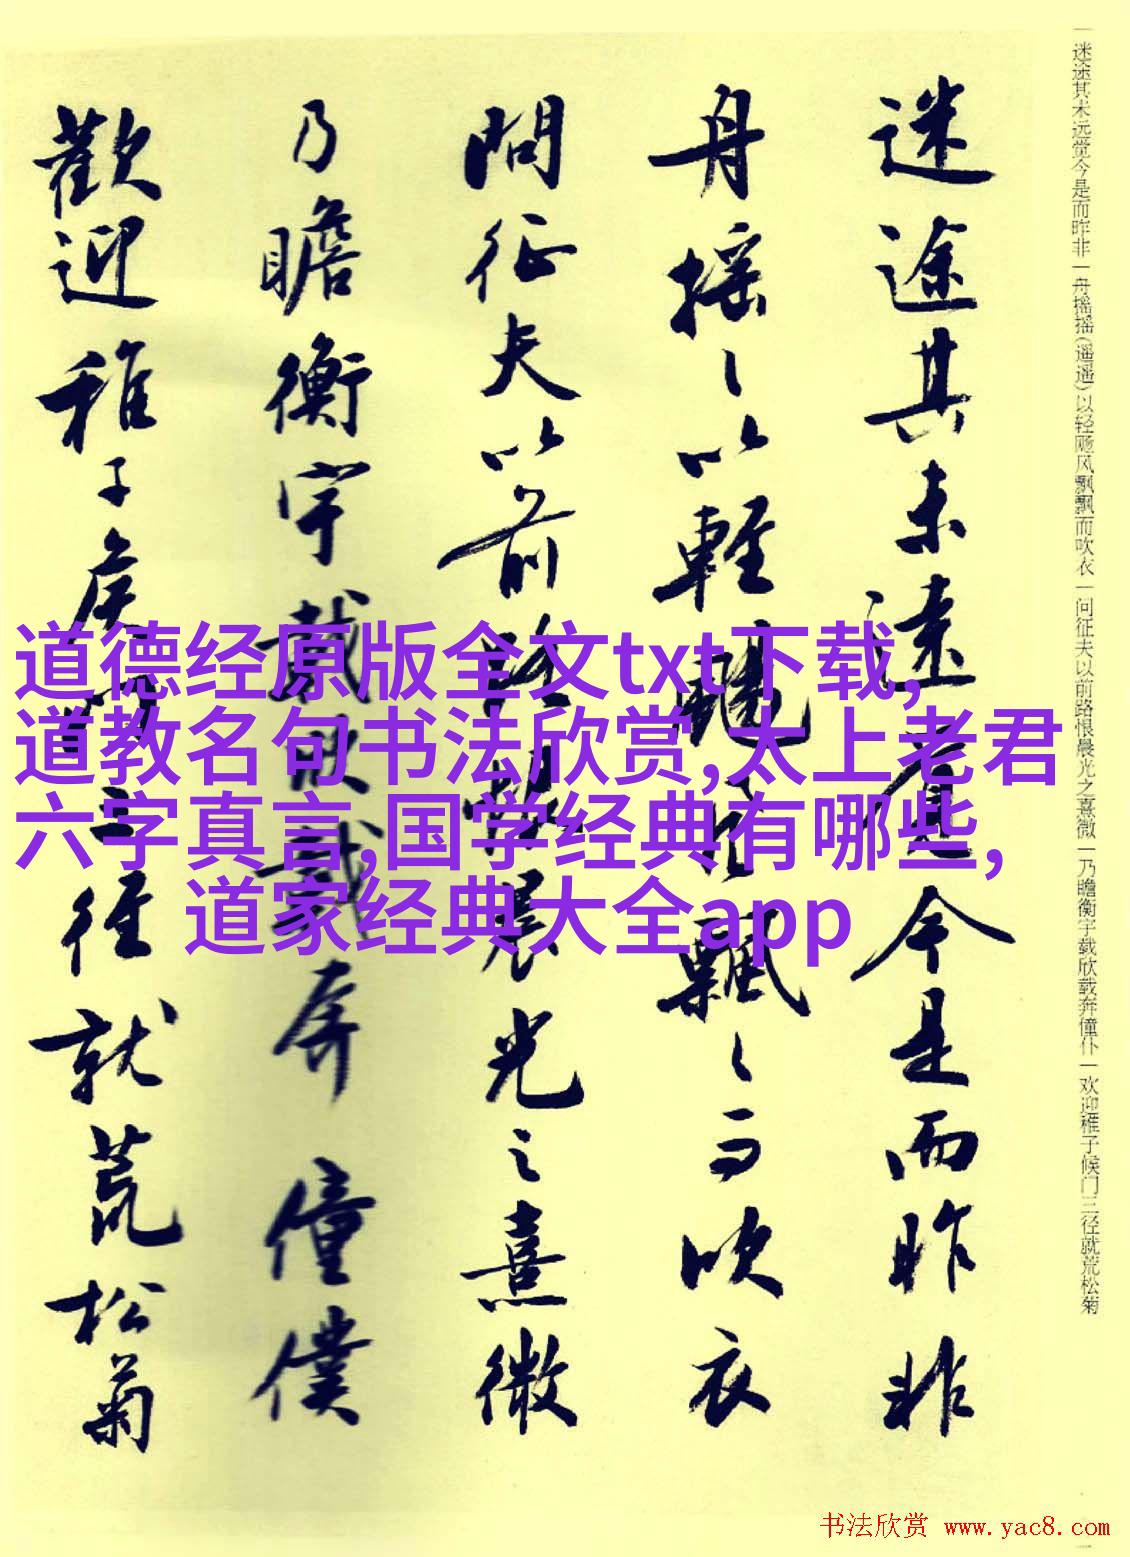 一迷途其未远觉今是而昨非一舟摇摇(遥遥)以轻飏风飘飘而吹衣一问征夫以前路恨晨光之熹微一乃瞻衡宇载欣载奔僮仆一欢迎稚子候门三径就荒松菊
迷途其未遠覺今是而昨非
舟搖〻以輕颺風飄〻而吹衣
問征夫以前路恨晨光之熹微
乃瞻衡宇載欣載奔僮僕
歡迎稚子候門三徑就荒松菊
道德经原版全文txt下载,
道教名句书法欣赏,太上老君
六字真言,国学经典有哪些,
道家经典大全app
书法欣赏 www.yac8.com